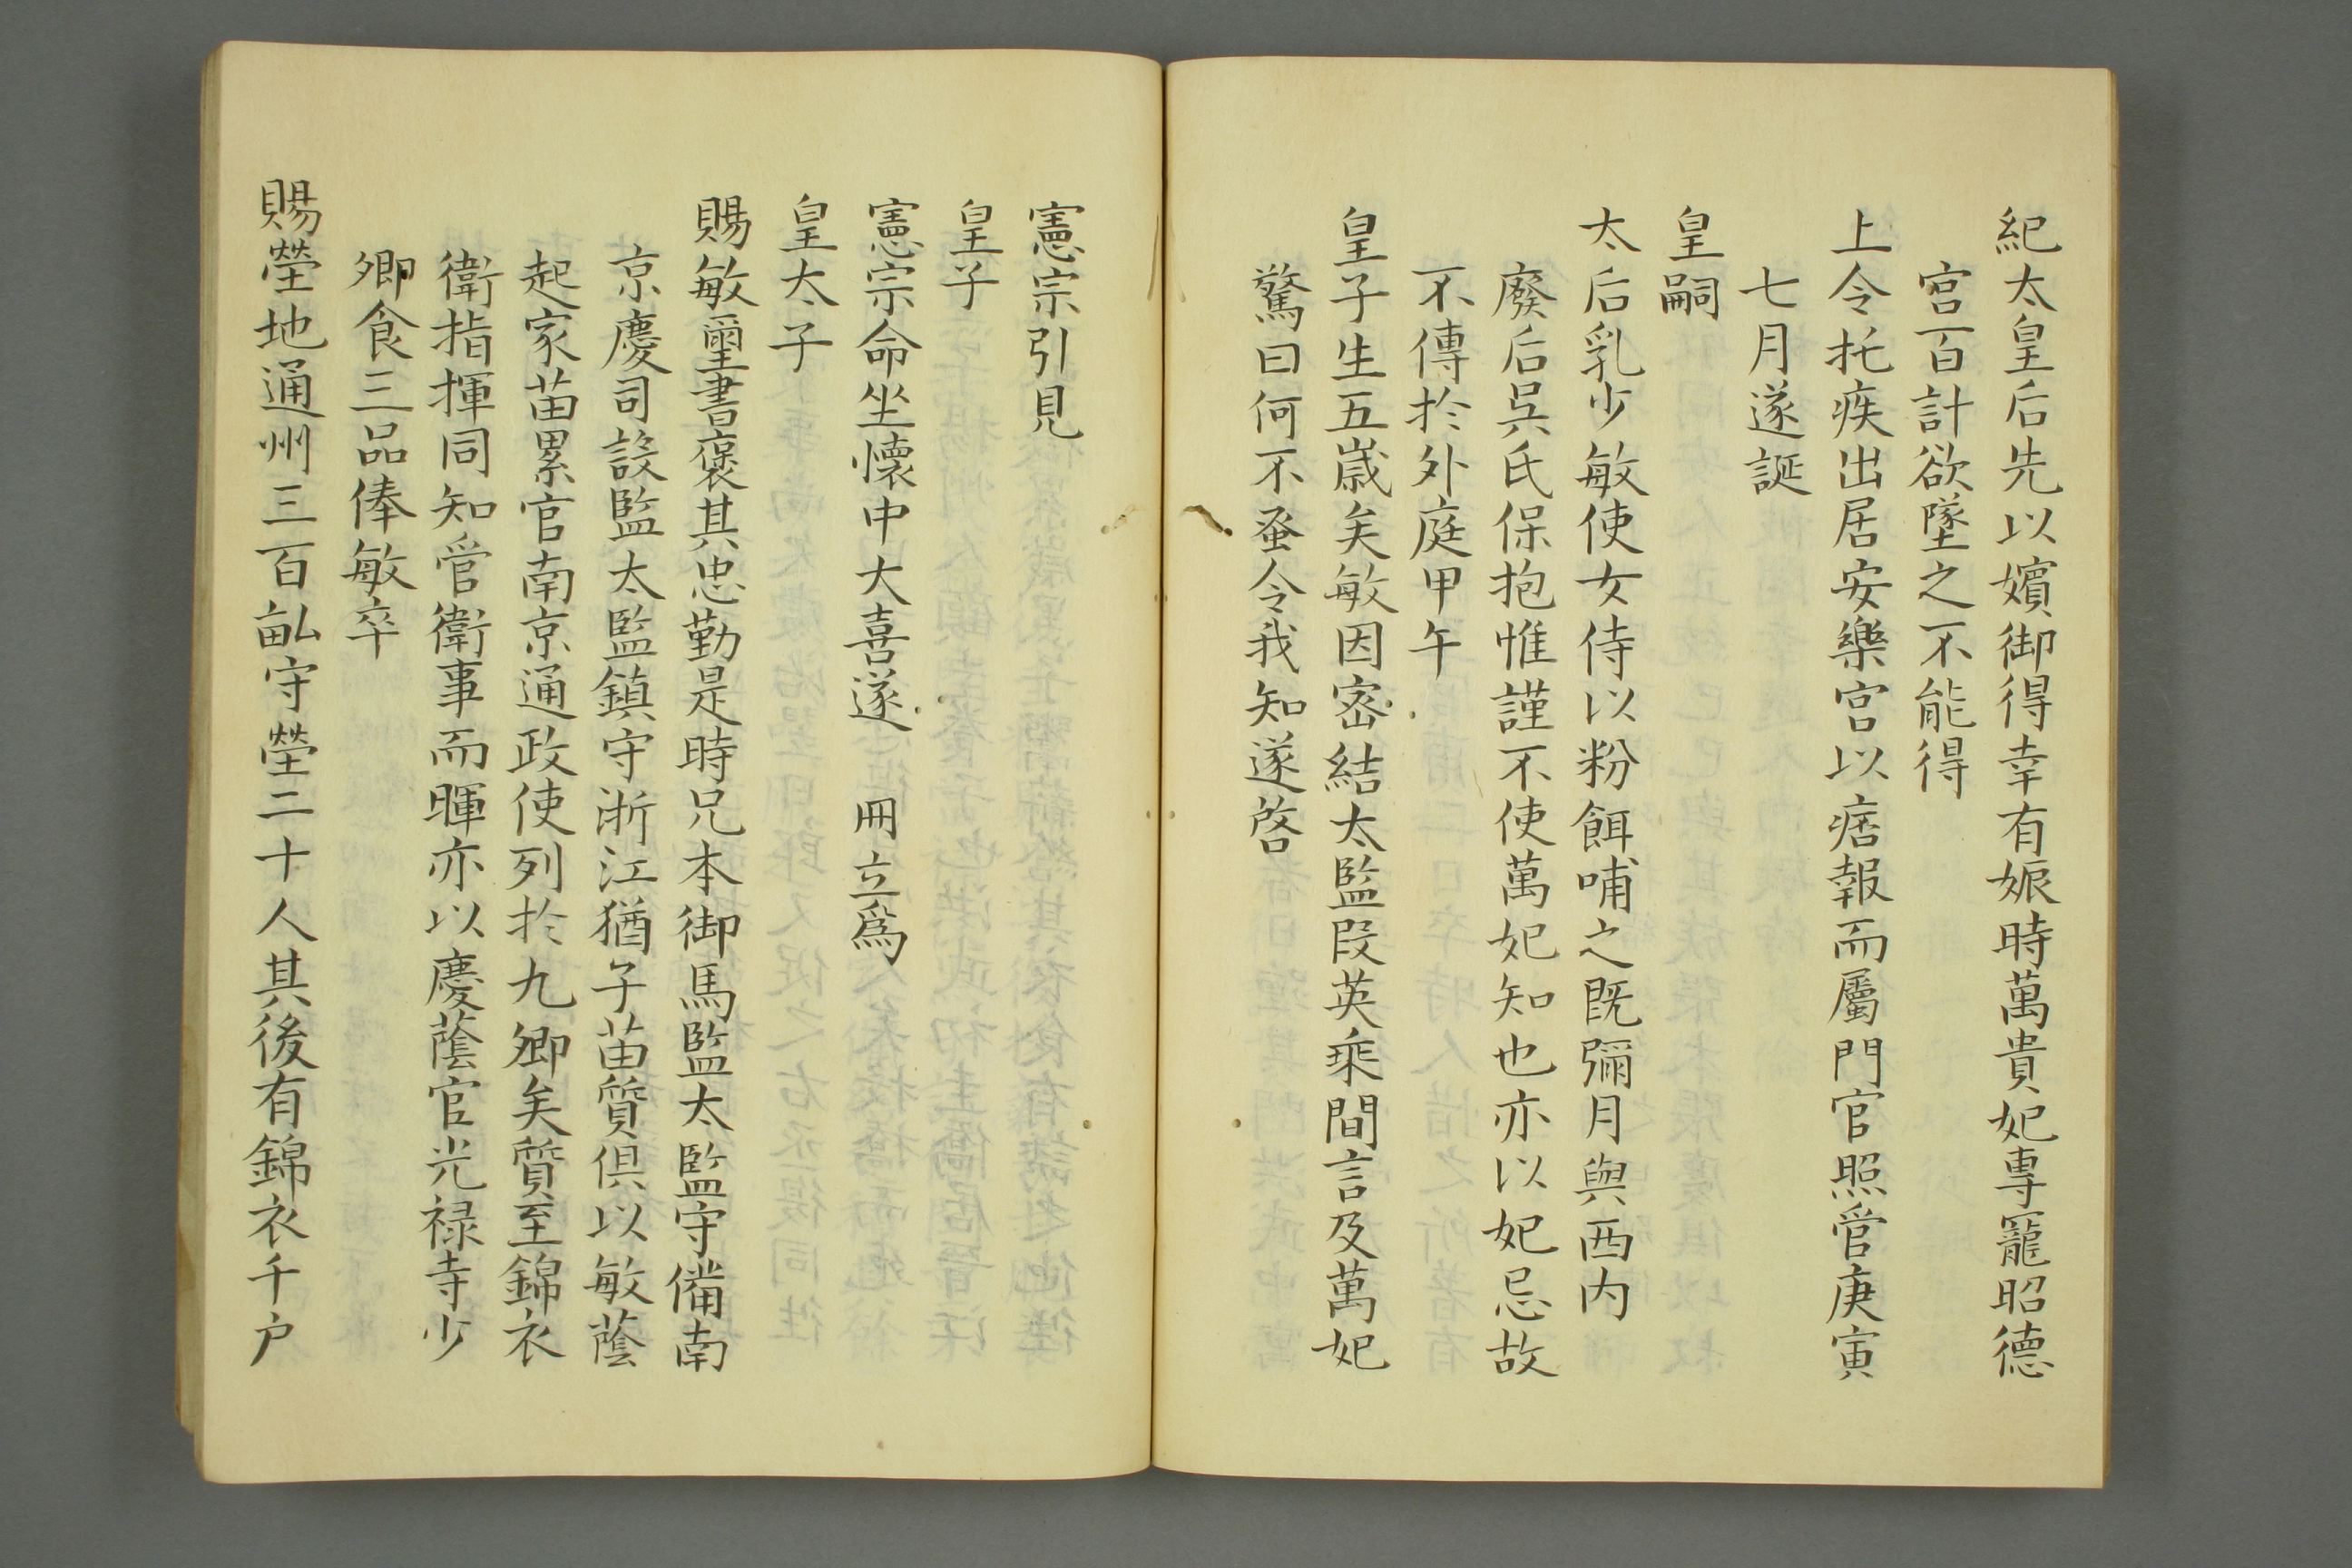 紀太皇后先以嬪御得幸有娠時萬貴妃專寵昭德
宮百計欲墜之不能得
上令托疾出居安樂宮以痞報而屬門官照管庚寅
七月遂誕
皇嗣
太后乳少敏使女侍以粉餌哺之既彌月與西内
廢后吳氏保抱惟謹不使萬妃知也亦以妃忌故
不傳於外庭甲午
皇子生五歲矣敏因密結太監段英乘間言及萬妃
驚曰何不蚤令我知遂啓
憲宗引見
皇子
憲宗命坐懷中大喜遂 冊立爲
皇太子
賜敏璽書褒其忠勤是時兄本御馬監太監守備南
京慶司設監太監鎮守浙江猶子苗質俱以敏蔭
起家苗累官南京通政使列於九卿矣質至錦衣
衛指揮同知管衛事而暉亦以慶蔭官光禄寺少
卿食三品俸敏卒
賜塋地通州三百畝守塋二十人其後有錦衣千户